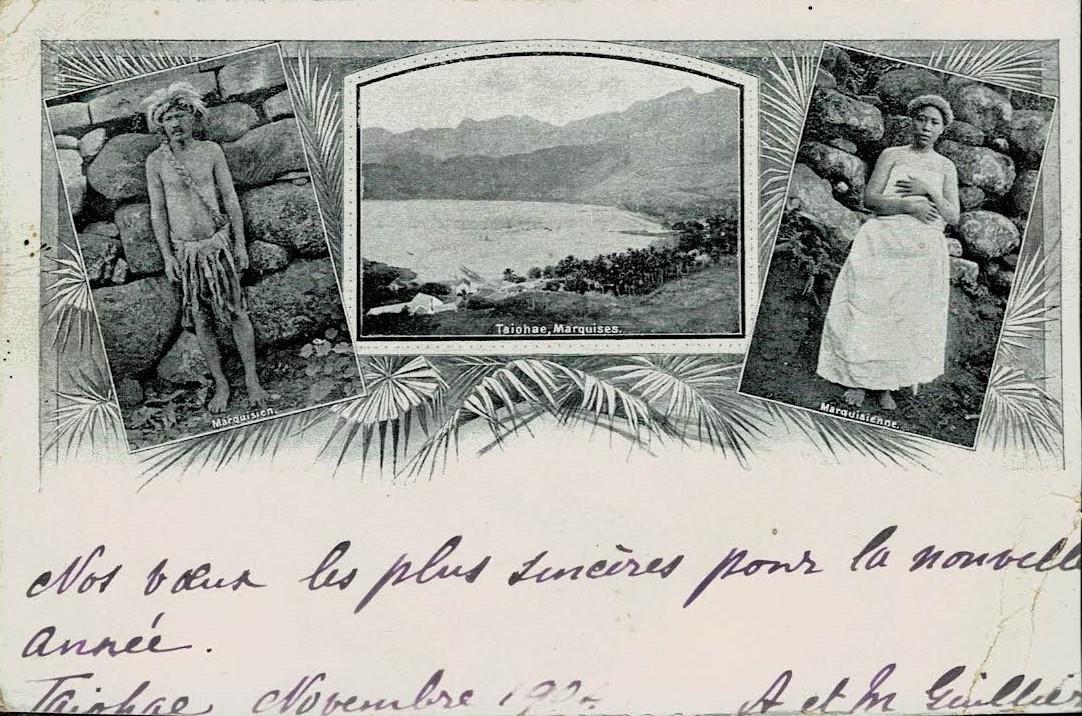 Taiohae, Marquises.
Marquisien.
Marquisienne.
Nos vœux les plus sincères pour la nouvelle
année.
Taiohae Novembre A et M